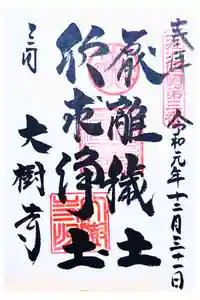 奉拝
令和元年十二月三十一日
厭離穢土
欣求浄土
三河
大樹寺